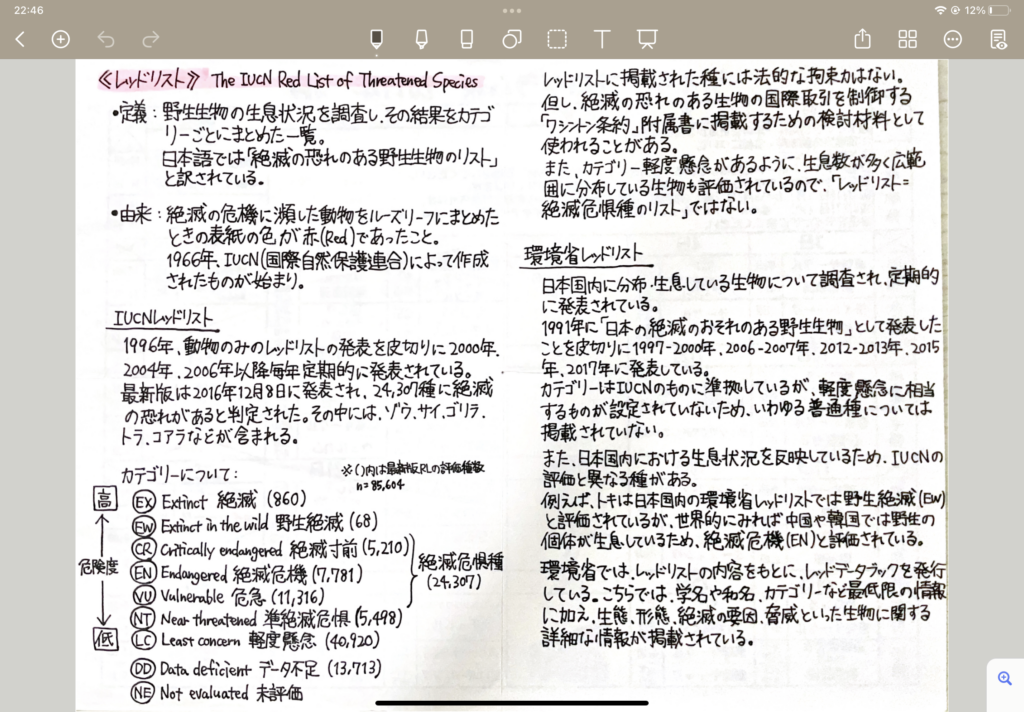 22:46
12%
《レッドリスト》 The IUCN Red List of Threatened Species
•定義：野生生物の生息状況を調査し、その結果をカテゴ
リーごとにまとめた一覧。
日本語では「絶滅の恐れのある野生生物のリスト」
と訳されている。
•由来：絶滅の危機に瀕した動物をルーズリーフにまとめた
ときの表紙の色が赤(Red)であったこと。
1966年、IUCN(国際自然保護連合)によって作成
されたものが始まり。
IUCNレッドリスト
1996年、動物のみのレッドリストの発表を皮切りに2000年、
2004年、2006年以降毎年定期的に発表されている。
最新版は2016年12月8日に発表され、24,307種に絶滅
の恐れがあると判定された。その中には、ゾウ、サイ、ゴリラ、
トラ、コアラなどが含まれる。
カテゴリーについて：
※( )内は最新版RLの評価種数
n=85,604
高
危険度
低
EX Extinct 絶滅 (860)
EW Extinct in the wild 野生絶滅 (68)
CR Critically endangered 絶滅寸前 (5,210)
EN Endangered 絶滅危機 (7,781)
VU Vulnerable 危急 (11,316)
絶滅危惧種
(24,307)
NT Near threatened 準絶滅危惧 (5,498)
LC Least concern 軽度懸念 (40,920)
DD Data deficient データ不足 (13,713)
NE Not evaluated 未評価
レッドリストに掲載された種には法的な拘束力はない。
但し、絶滅の恐れのある生物の国際取引を制御する
「ワシントン条約」附属書に掲載するための検討材料として
使われることがある。
また、カテゴリー軽度懸念があるように、生息数が多く広範
囲に分布している生物も評価されているので、「レッドリスト=
絶滅危惧種のリスト」ではない。
環境省レッドリスト
日本国内に分布・生息している生物について調査され、定期的
に発表されている。
1991年に「日本の絶滅のおそれのある野生生物」として発表した
ことを皮切りに1997-2000年、2006-2007年、2012-2013年、2015
年、2017年に発表している。
カテゴリーはIUCNのものに準拠しているが、軽度懸念に相当
するものが設定されていないため、いわゆる普通種については
掲載されていない。
また、日本国内における生息状況を反映しているため、IUCNの
評価と異なる種がある。
例えば、トキは日本国内の環境省レッドリストでは野生絶滅(EW)
と評価されているが、世界的にみれば中国や韓国では野生の
個体が生息しているため、絶滅危機(EN)と評価されている。
環境省では、レッドリストの内容をもとに、レッドデータブックを発行
している。こちらでは、学名や和名、カテゴリーなど最低限の情報
に加え、生態、形態、絶滅の要因、脅威といった生物に関する
詳細な情報が掲載されている。